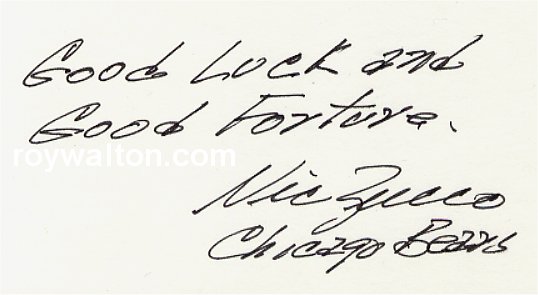 Good Luck and
Good Fortune.
roywalton.com
Nic Zucco
Chicago Bears